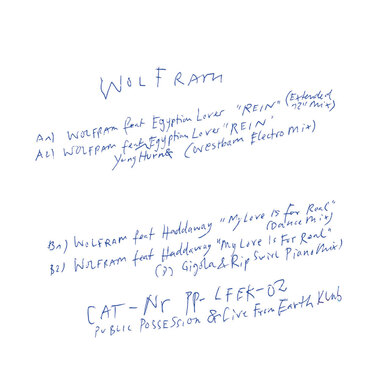 WOLFRAM
A1) WOLFRAM feat Egyptian Lover "REIN" (Extended
12" Mix)
A2) WOLFRAM feat Egyptian Lover "REIN"
Yung Hurn & (Westbam Electro Mix)
B1) WOLFRAM feat Haddaway "My Love Is for Real"
(Dance Mix)
B2) WOLFRAM feat Haddaway "My Love Is For Real"
(DJ Gigola & Rip Swirl Piano Mix)
CAT-Nr PP-LFEK-02
PUBLIC POSSESSION & Live From Earth Klub